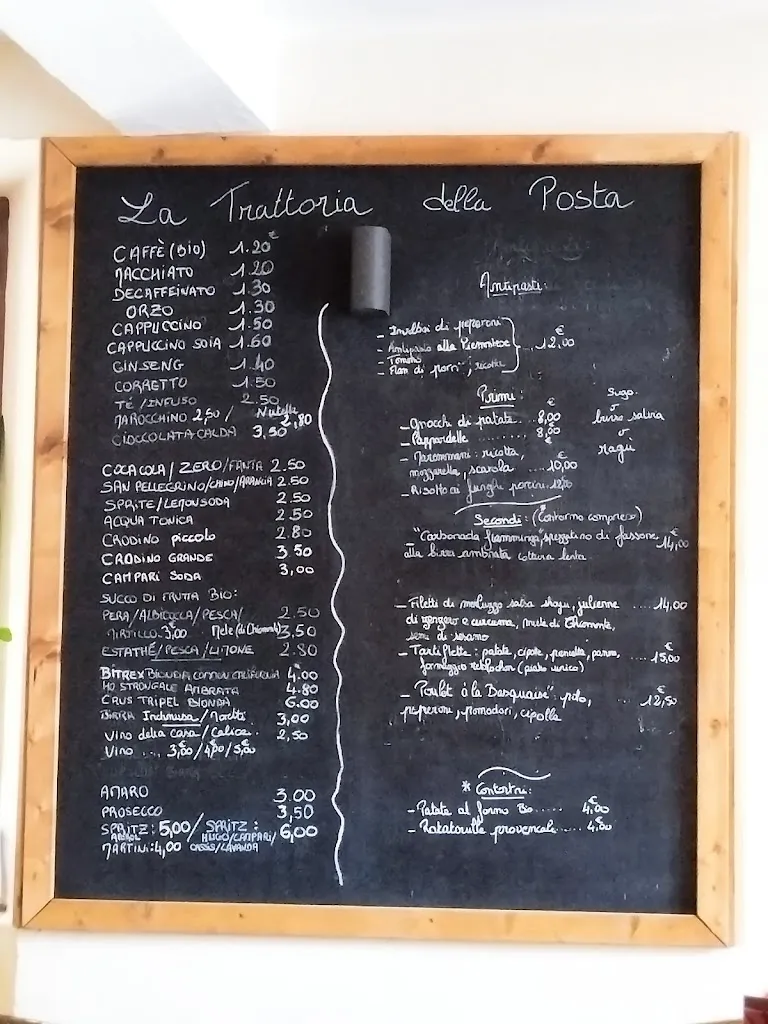 La Trattoria della Posta
CAFFÈ (BIO) 1.20€
MACCHIATO 1.20
DECAFFEINATO 1.30
ORZO 1.30
CAPPUCCINO 1.50
CAPPUCCINO SOIA 1.60
GINSENG 1.40
CORRETTO 1.50
TÈ/INFUSO 2.50
MAROCCHINO 2,50 / Nutella 2,80
CIOCCOLATA CALDA 3,50
COCA COLA / ZERO/FANTA 2.50
SAN PELLEGRINO/CHINO/ARANCIA 2.50
SPRITE/LEMONSODA 2.50
ACQUA TONICA 2.50
CRODINO piccolo 2.80
CRODINO GRANDE 3.50
CAMPARI SODA 3,00
SUCCO DI FRUTTA BIO:
PERA/ALBICOCCA/PESCA/ 2.50
MIRTILLO: 3,00 Mele (di Chiomonte) 3,50
ESTATHÉ/PESCA/LIMONE 2.80
BITREX BIONDA 4.00
AMBRATA 4.80
TRIPEL BIONDA 6.00
BIRRA Ichnusa/Moretti 3,00
Vino della casa/Calice 2,50
Vino ... 3,00/4,00/5,00
AMARO 3.00
PROSECCO 3,50
SPRITZ: 5,00 / SPRITZ: 6,00
APEROL HUGO/CAMPARI/
MARTINI: 4,00 CASSIS/LAVANDA
Antipasti:
- Involtini di peperoni
- Antipasto alla Piemontese ... 12,00 €
- Tomino
- Flan di porri; ricotta
Primi: Sugo:
- Gnocchi di patate 8,00 € burro salvia
- Pappardelle ........ 8,00 € o
ragù
ricotta,
mozzarella, scarola ... 10,00
- Risotto ai funghi porcini 12,00
Secondi: (Contorno compreso)
"Carbonada fiamminga" spezzatino di fassone 14,00 €
alla birra ambrata cottura lenta.
- Filetti di merluzzo salsa shoyu, julienne ..... 14,00
di zenzero e curcuma, mele di Chiomonte,
semi di sesamo
- Tartiflette: patate, cipolle, pancetta, panna, 15,00 €
formaggio reblochon (piatto unico)
- "Poulet à la Basquaise" pollo, 12,50 €
peperoni, pomodori, cipolla
* Contorni:
- Patate al forno Bio ..... 4,00 €
- Ratatouille provenzale ..... 4,00 €